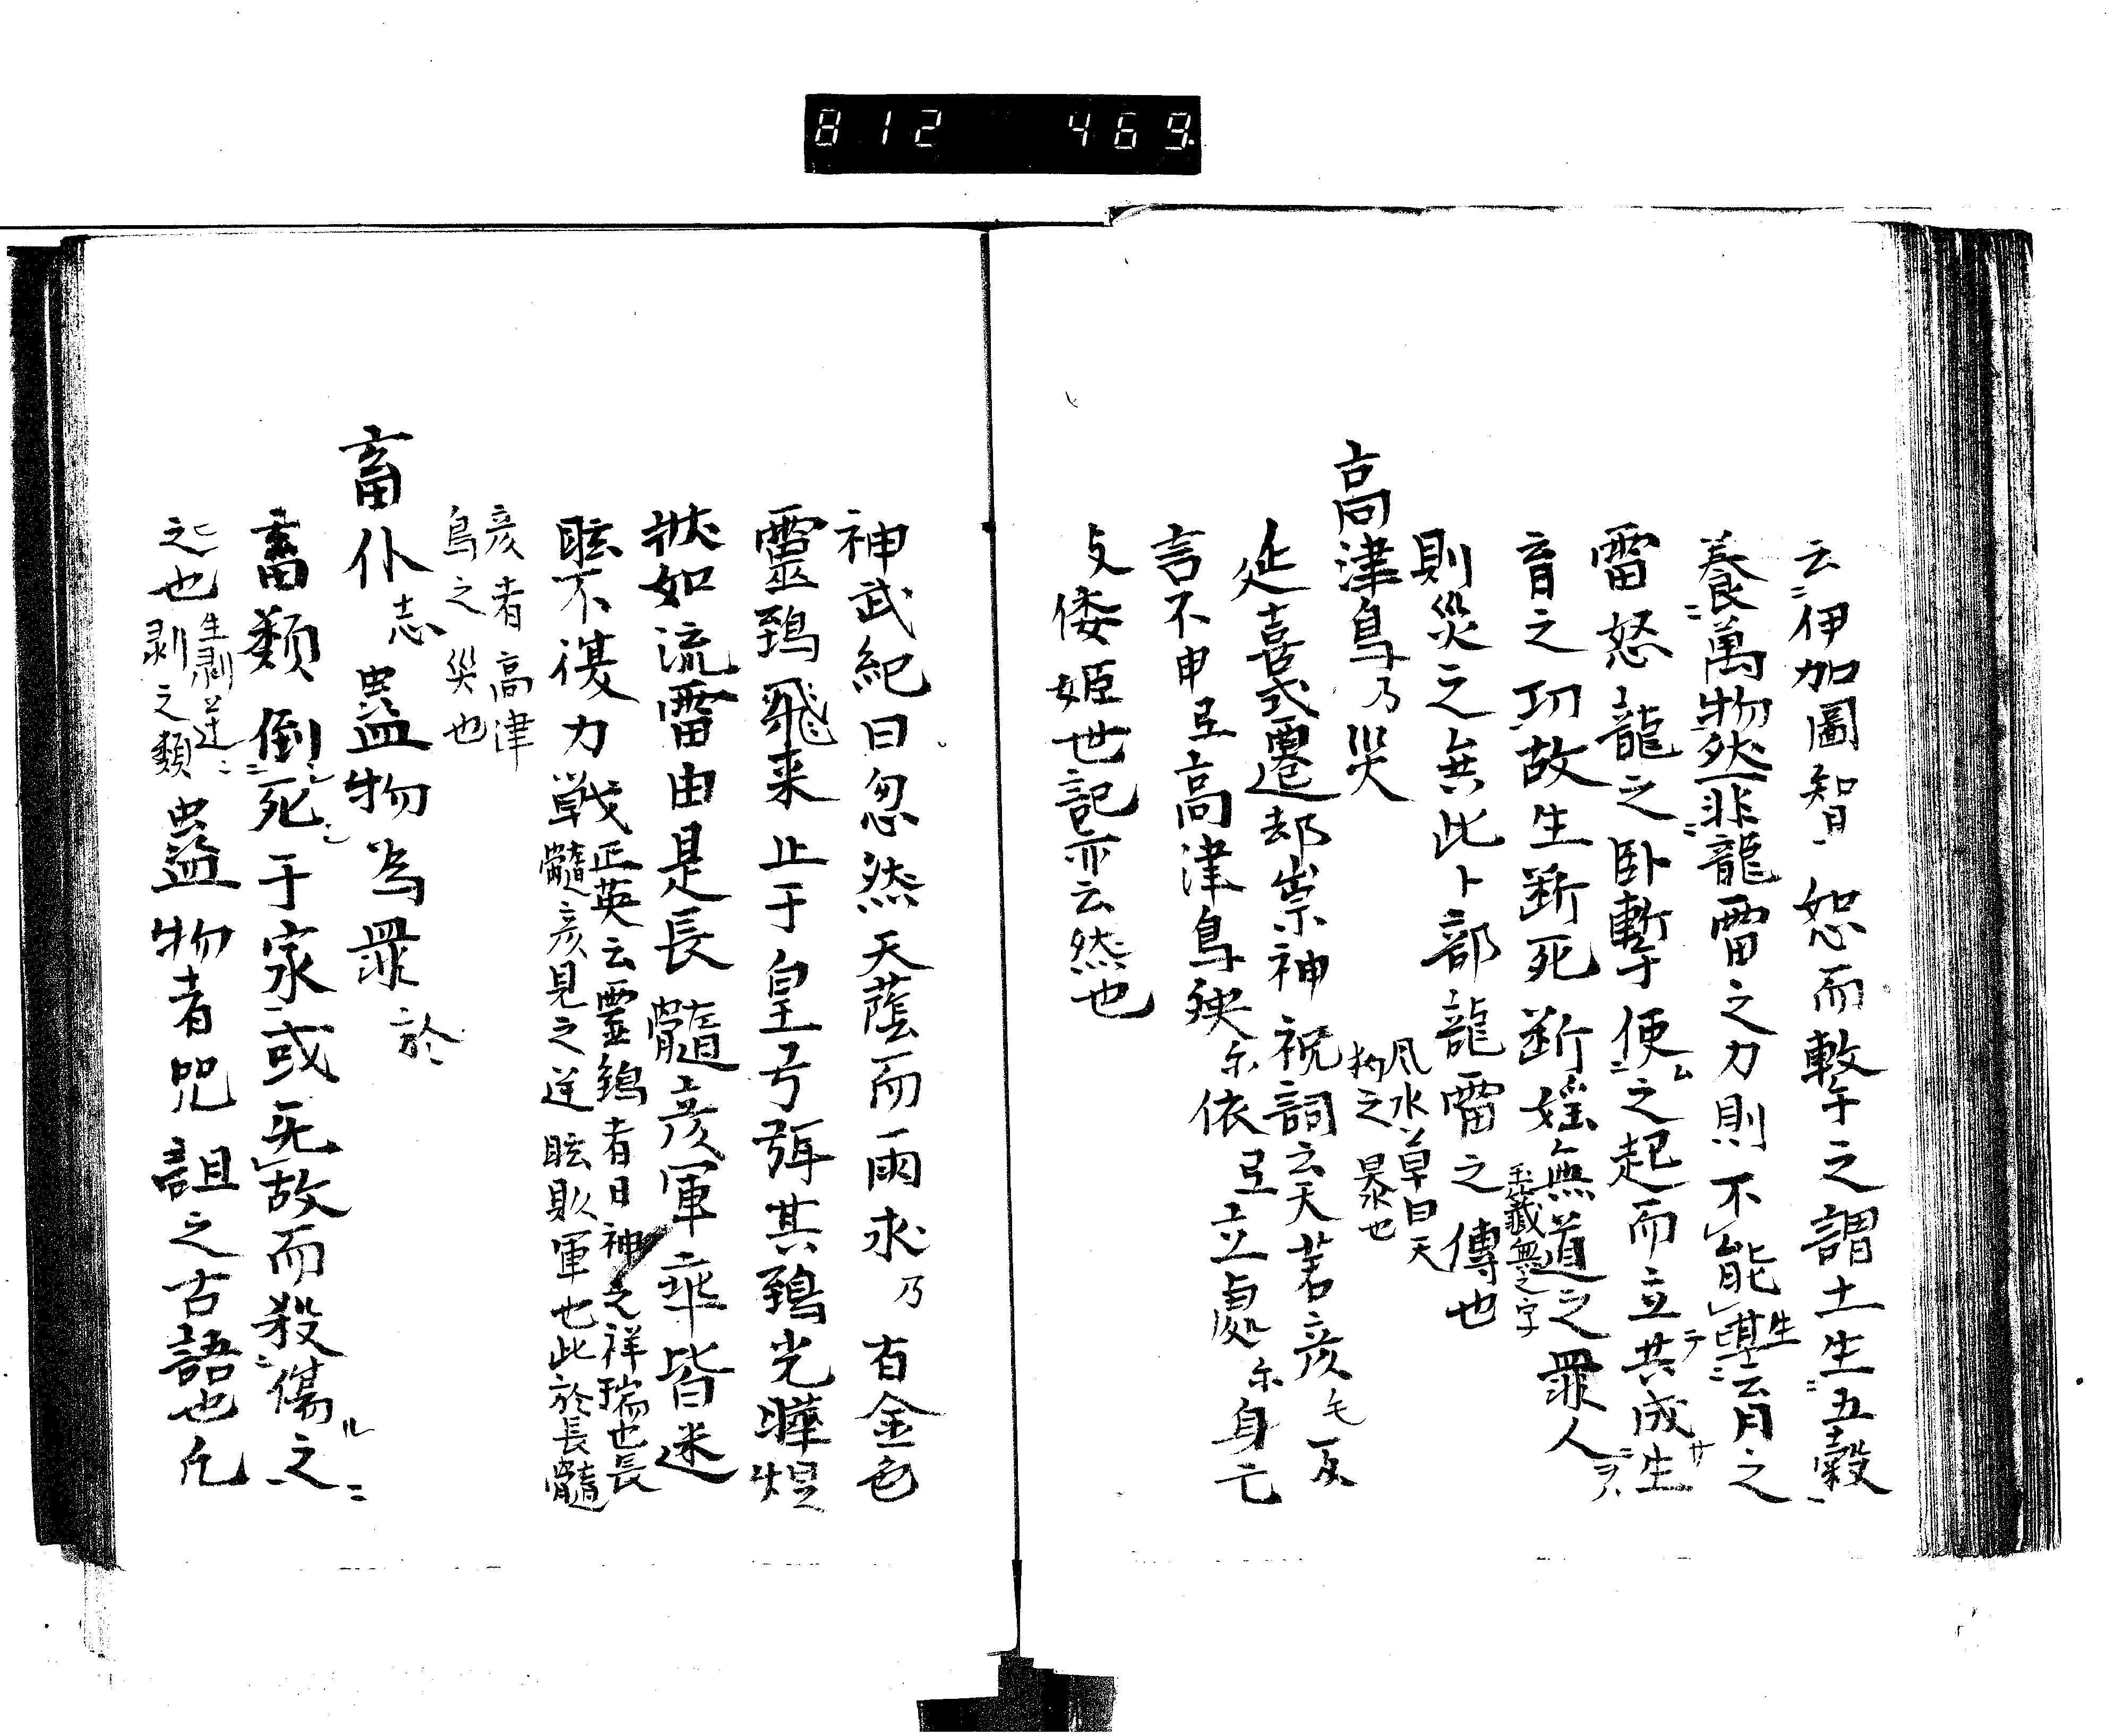 812 469
云伊加圖智恕而擊之謂土生五穀
養萬物然非龍雷之力則不能生育之
雷怒龍之臥擊便之起而立共成生
育之功故生断死断婬無道之罪人
玉籖無之字
則災之矣此卜部龍雷之傳也
風水草曰天
狗之暴也
高津鳥乃災
延喜式遷却崇神祝詞云天若彦毛返
言不申弖高津鳥殃尓依弖立處尓身亡
支倭姫世記亦云然也
神武紀曰忽然天蔭而雨氷乃有金色
靈鵄飛来止于皇弓弭其鵄光曄煜
狀如流雷由是長髓彦軍卒皆迷
眩不復力戦
正英云靈鵄者日神之祥瑞也長
髓彦見之迷眩敗軍也此於長髓
彦者高津
鳥之災也
畜仆志蠱物為罪於
畜類倒死于家或死故而殺傷之
之也
生剥逆
剥之類
蠱物者咒詛之古語也凡